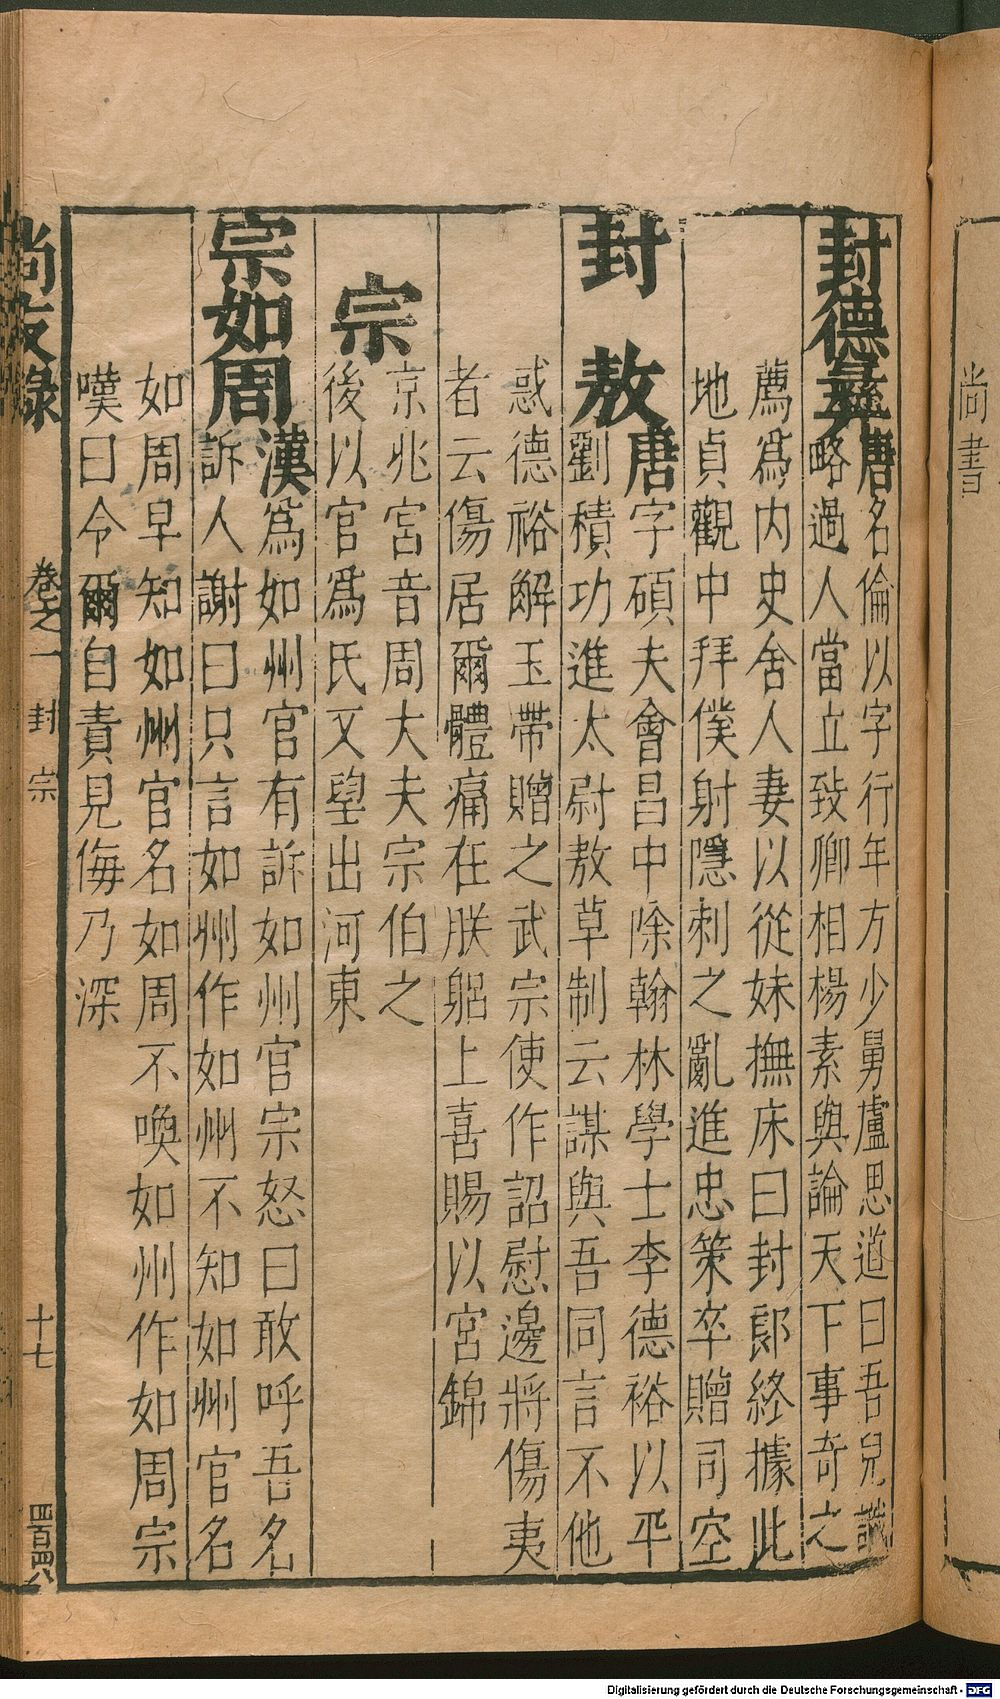 尚書
封德彝
唐名倫以字行年方少舅盧思道曰吾兒識
略過人當立致卿相楊素與論天下事奇之
薦爲内史舍人妻以從妹撫床曰封郎終據此
地貞觀中拜僕射隱刺之亂進忠策卒贈司空
封敖
唐字碩夫會昌中除翰林學士李德裕以平
劉積功進太尉敖草制云謀與吾同言不他
惑德裕解玉帶贈之武宗使作詔慰邊將傷夷
者云傷居爾體痛在朕躬上喜賜以宮錦
宗
京兆宮音周大夫宗伯之
後以官爲氏又望出河東
宗如周
漢爲如州官有訴如州官宗怒曰敢呼吾名
訴人謝曰只言如州作如州不知如州官名
如周早知如州官名如周不喚如州作如周宗
嘆曰令爾自責見侮乃深
尚友錄
卷之一
封
宗
十七
四百四八
Digitalisierung gefördert durch die Deutsche Forschungsgemeinschaft - DFG